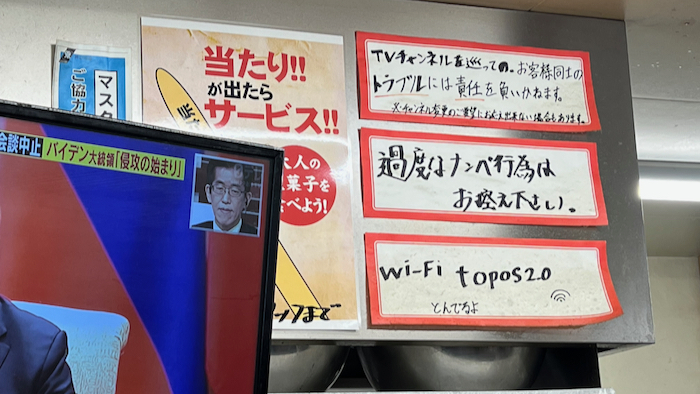 マスク
ご協力
当たり!!
が出たら
サービス!!
大人の
菓子を
べよう!
まで
会談中止
バイデン大統領「侵攻の始まり」
TVチャンネルを巡っての、お客様同士の
トラブルには責任を負いかねます。
※チャンネル変更のご要望にお応え出来ない場合もあります。
過度なナンパ行為は
お控え下さい。
Wi-Fi topos2.0
とんでるよ